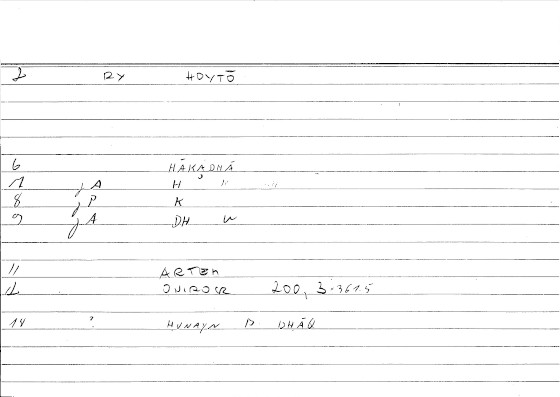 2 RY HOYTŌ
6 HĀKADHĀ
7 jA H
8 jP K
9 jA DH W
11 ARTEM
12 200, 3.3615
14 ? HUNAYN B DHĀQ